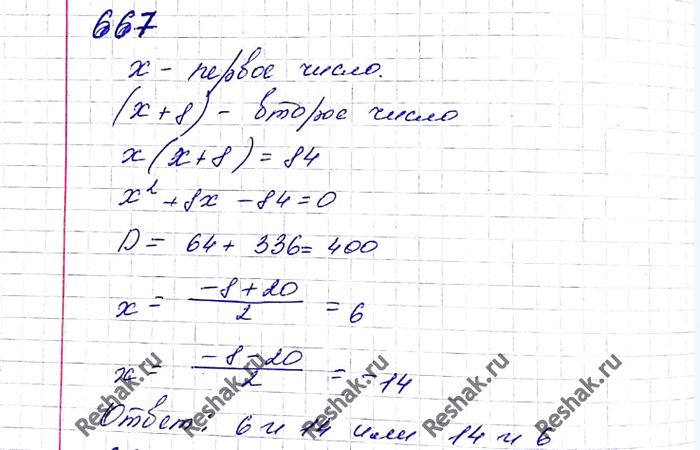 667
x - первое число.
(x+8) - второе число
x(x+8)=84
x²+8x-84=0
D= 64+ 336= 400
x= (-8+20)/2 = 6
x= (-8-20)/2 = -14
Ответ: 6 и 14 или 14 и 6
Reshak.ru Reshak.ru Reshak.ru Reshak.ru Reshak.ru